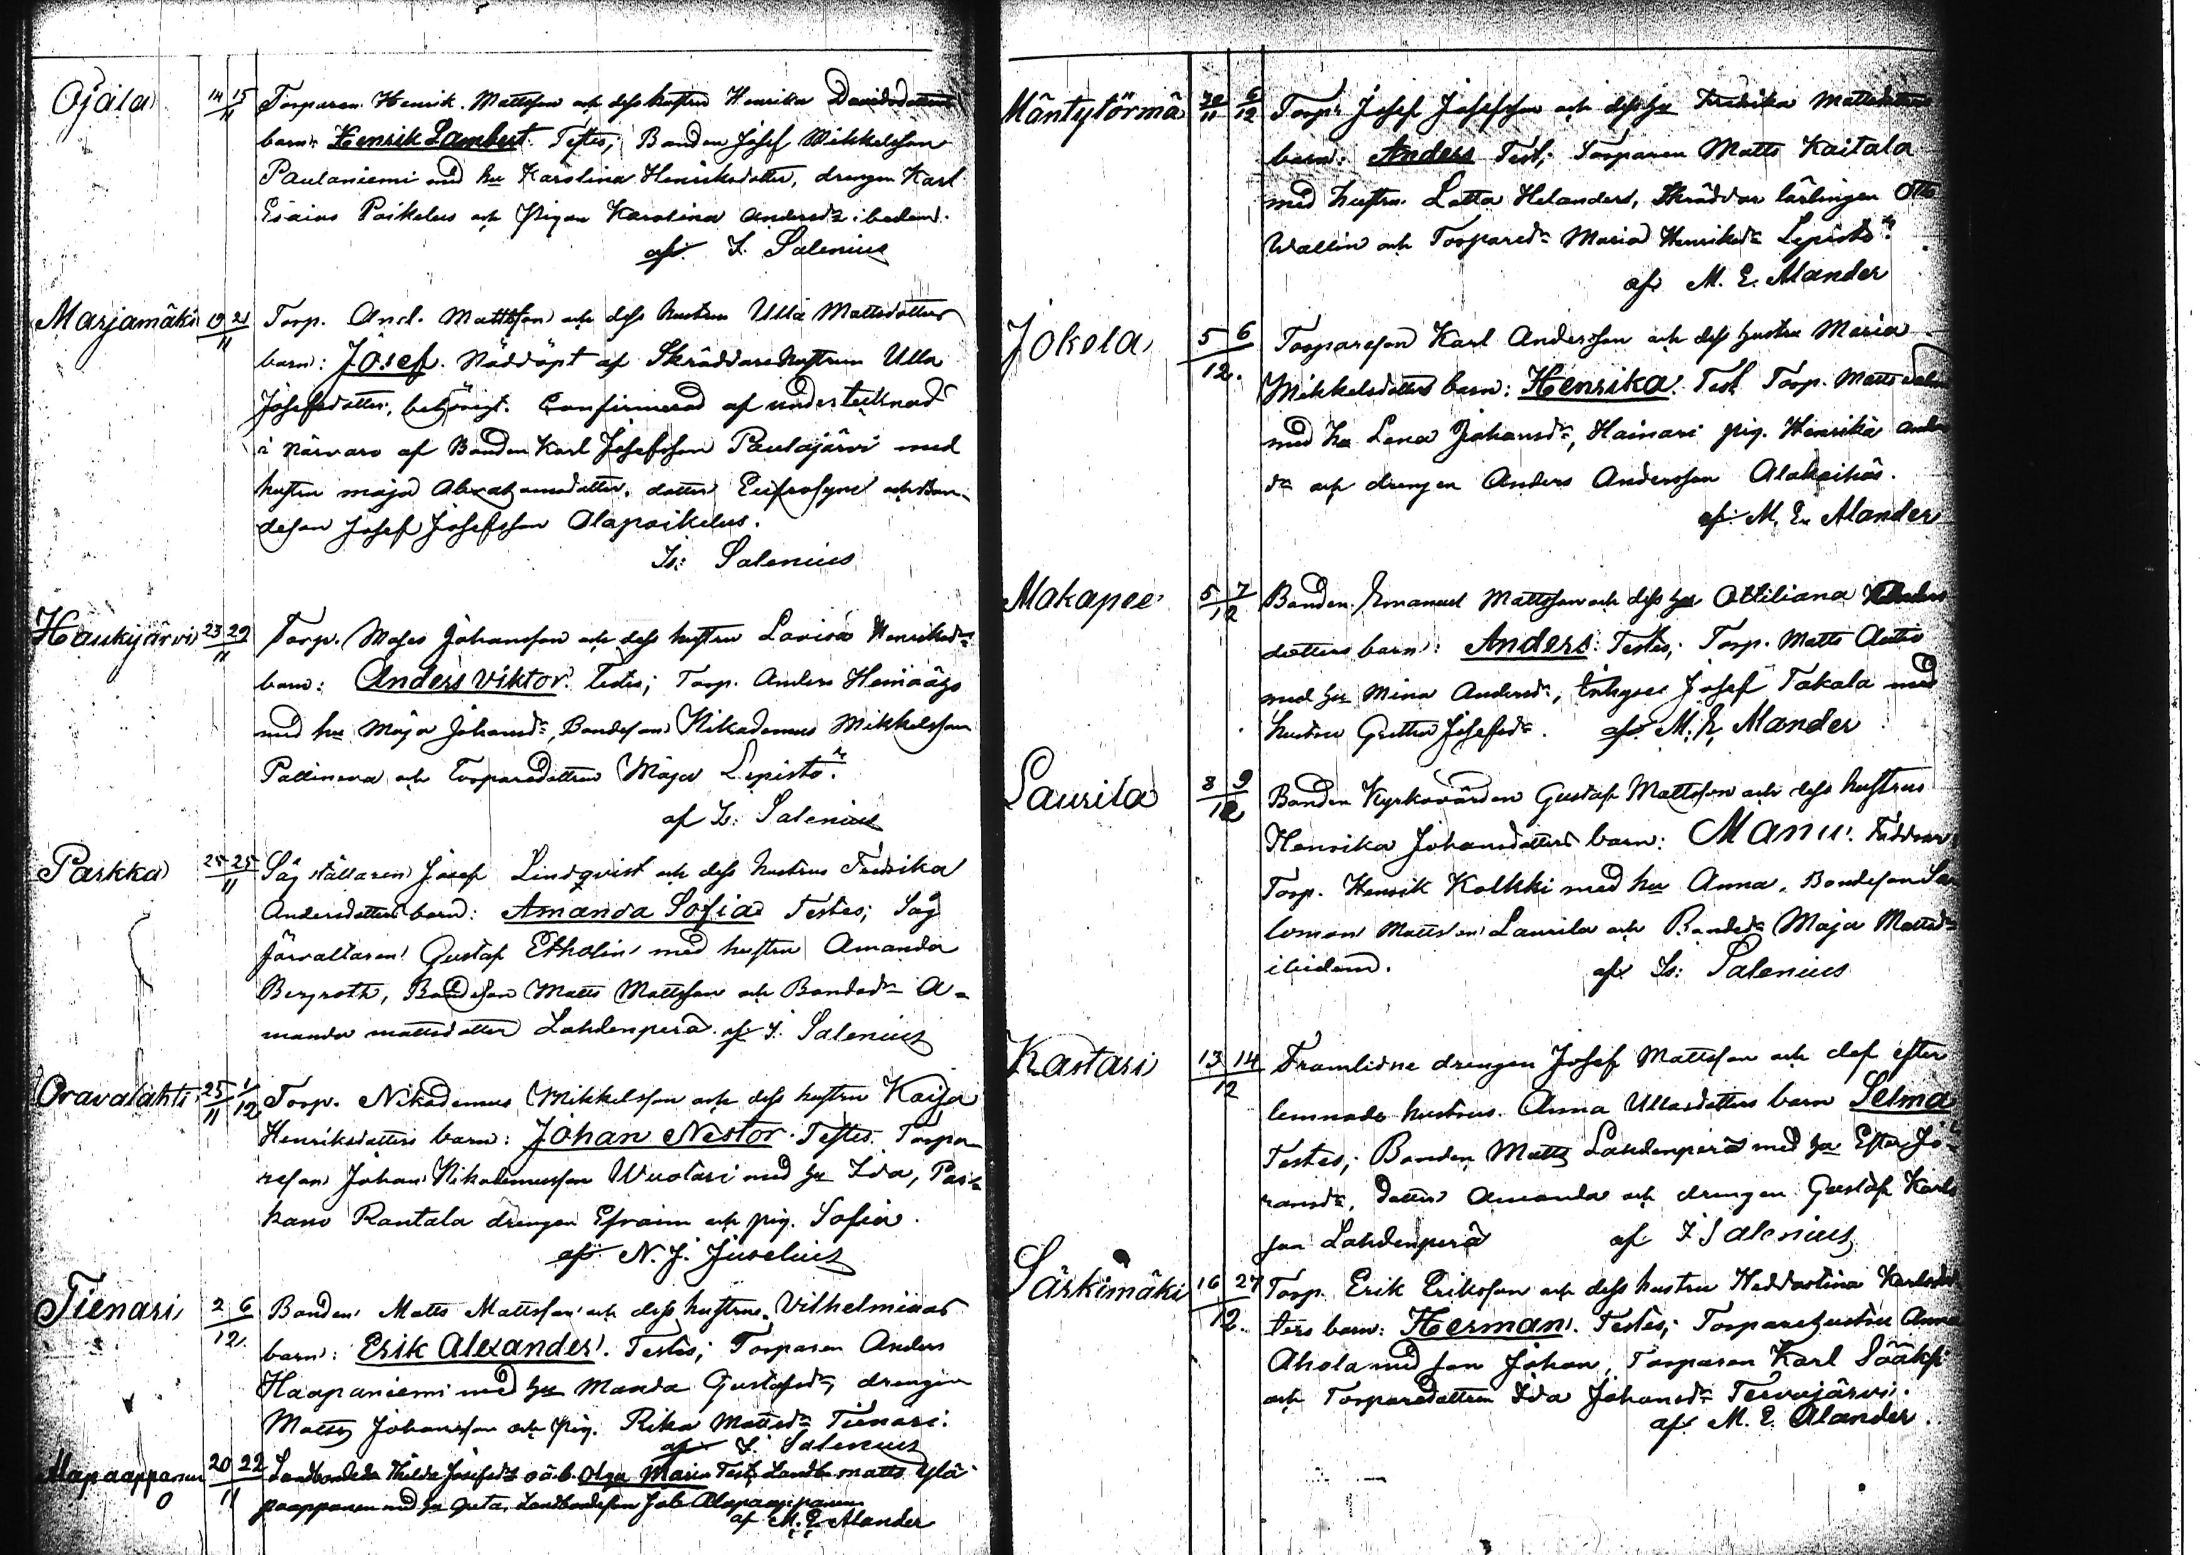 Ojala 14 15/11 Torparen Henrik Mattsson och dess hustru Henrika Davidsdotters
barn: Henrik Lambert. Testes; Bonden Josef Mikkelsson
Paulaniemi med hu Karolina Henriksdotter, drengen Karl
Esaias Poikelus och pigan Karolina Andersdr ibidem.
af I. Salenius
Marjamäki 19 21/11 Torp. And. Mattsson och dess hustrus Ulla Mattsdotters
barn: Josef. Nöddöpt af Skräddarehustrun Ulla
Josefsdotter, behörigt. Confirmerad af undertecknad
i närvaro af Bonden Karl Josefsson Paulajärvi med
hustru Maja dotter Eufrosyne och Bon-
deson Josef Josefsson Alapoikelus.
Is: Salenius
Haukijärvi 23 29/11 Torp. Moses Johansson och dess hustru Lovisa Henriksdrs
barn: Anders Viktor. Testes; Torp. Anders
med hu Maja Johansdr, Bondeson Nikodemus Mikkelsson
och Torparedottren Maja Lepistö.
af Is: Salenius
Parkka 25 25/11 Sågställaren Josef Lindqvist och dess hustrus Fredrika
Andersdotters barn: Amanda Sofia Testes; Såg
förvaltaren Gustaf Etholin med hustru Amanda
Bergroth, Bondeson Matts Mattsson och Bondedr A-
manda Mattsdotter Lahdenperä. af I. Salenius
Oravalahti 25/11 1/12 Torp. Nikodemus Mikkelsson och dess hustru Kaisa
Henriksdotters barn: Johan Nestor. Testes. Torpa-
reson Johan Nikodemusson Wuotari med hu Ida,
Rantala drengen Efraim och pig. Sofia.
af N. J. Juselius
Tienari 2 6/12. Bonden Matts Mattsson och dess hustrus Vilhelminas
barn: Erik Alexander. Testes; Torparen Anders
Haapaniemi med hu Manda Gustafsdr, drengen
Matts Johansson och pig. Rika Mattsdr Tienari.
af I. Salenius
Alapaappanen 20 22/11 Hilda Josefsdrs o ä. b. Olga Maria Test. Landb. Matts Ylä-
0 paappanen med hu Greta, Landbondeson Job Alapaappanen
af M. E. Alander
Mäntytörmä 30/11 6/12 Torpr Josef Josefsson och dess hu Fredrika Mattsdotters
barn: Anders Test; Torparen Matts Kaitala
med hustru Lotta Helander, Skräddar lärlingen Otto
Wallin och Torparedr Maria Henriksdr Lepistö.
af M. E. Alander
Jokela 5 6/12. Torpareson Karl Andersson och dess hustru Maria
Mikkelsdotters barn: Henrika. Test Torp. Matts
med hu Lena Johansdr, Hainari pig. Henrika Anders
dr och drengen Anders Andersson
af M. E. Alander
Makapee 5 7/12 Bonden Emanuel Mattsson och dess hu Ottiliana
dotters barn: Anders. Testes; Torp. Matts Autio
med hu Mina Andersdr, Josef Takala med
hustru Gretta Josefsdr. af M. E. Alander
Laurila 8 9/12 Bonden Kyrkovärden Gustaf Mattsson och dess hustrus
Henrika Johansdotters barn: Manu. Faddrar
Torp. Henrik Kolkki med hu Anna, Bondeson Sa-
lomon Mattsson Laurila och Bondedr Maja Mattsdr
ibidem. af Is: Salenius
Kastari 13 14/12 Framlidne drengen Josef Mattsson och dess efter
lemnade hustrus Anna Ullasdotters barn Selma
Testes; Bonden Matts Lahdenperä med hu Ester Jo-
hansdr, dotter Amanda och drengen Gustaf Karls
son Lahdenperä af I Salenius
Särkimäki 16 27/12. Torp. Erik Eriksson och dess hustru Heddastina Karlsdot
ters barn: Herman. Testes; Torparehustru Anna
Ahola med son Johan, Torparen Karl Sääksi
och Torparedottren Ida Johansdr Tervajärvi.
af M. E. Alander.